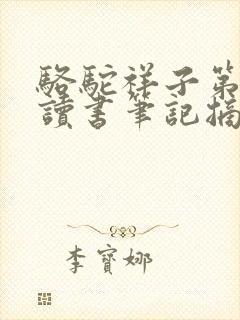 駱駝祥子第
讀書筆記摘
李寶娜